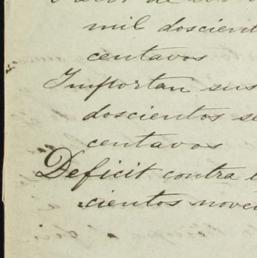 mil doscient
centavos
Importan sus
doscientos se
centavos
Deficit contra e
cientos nove